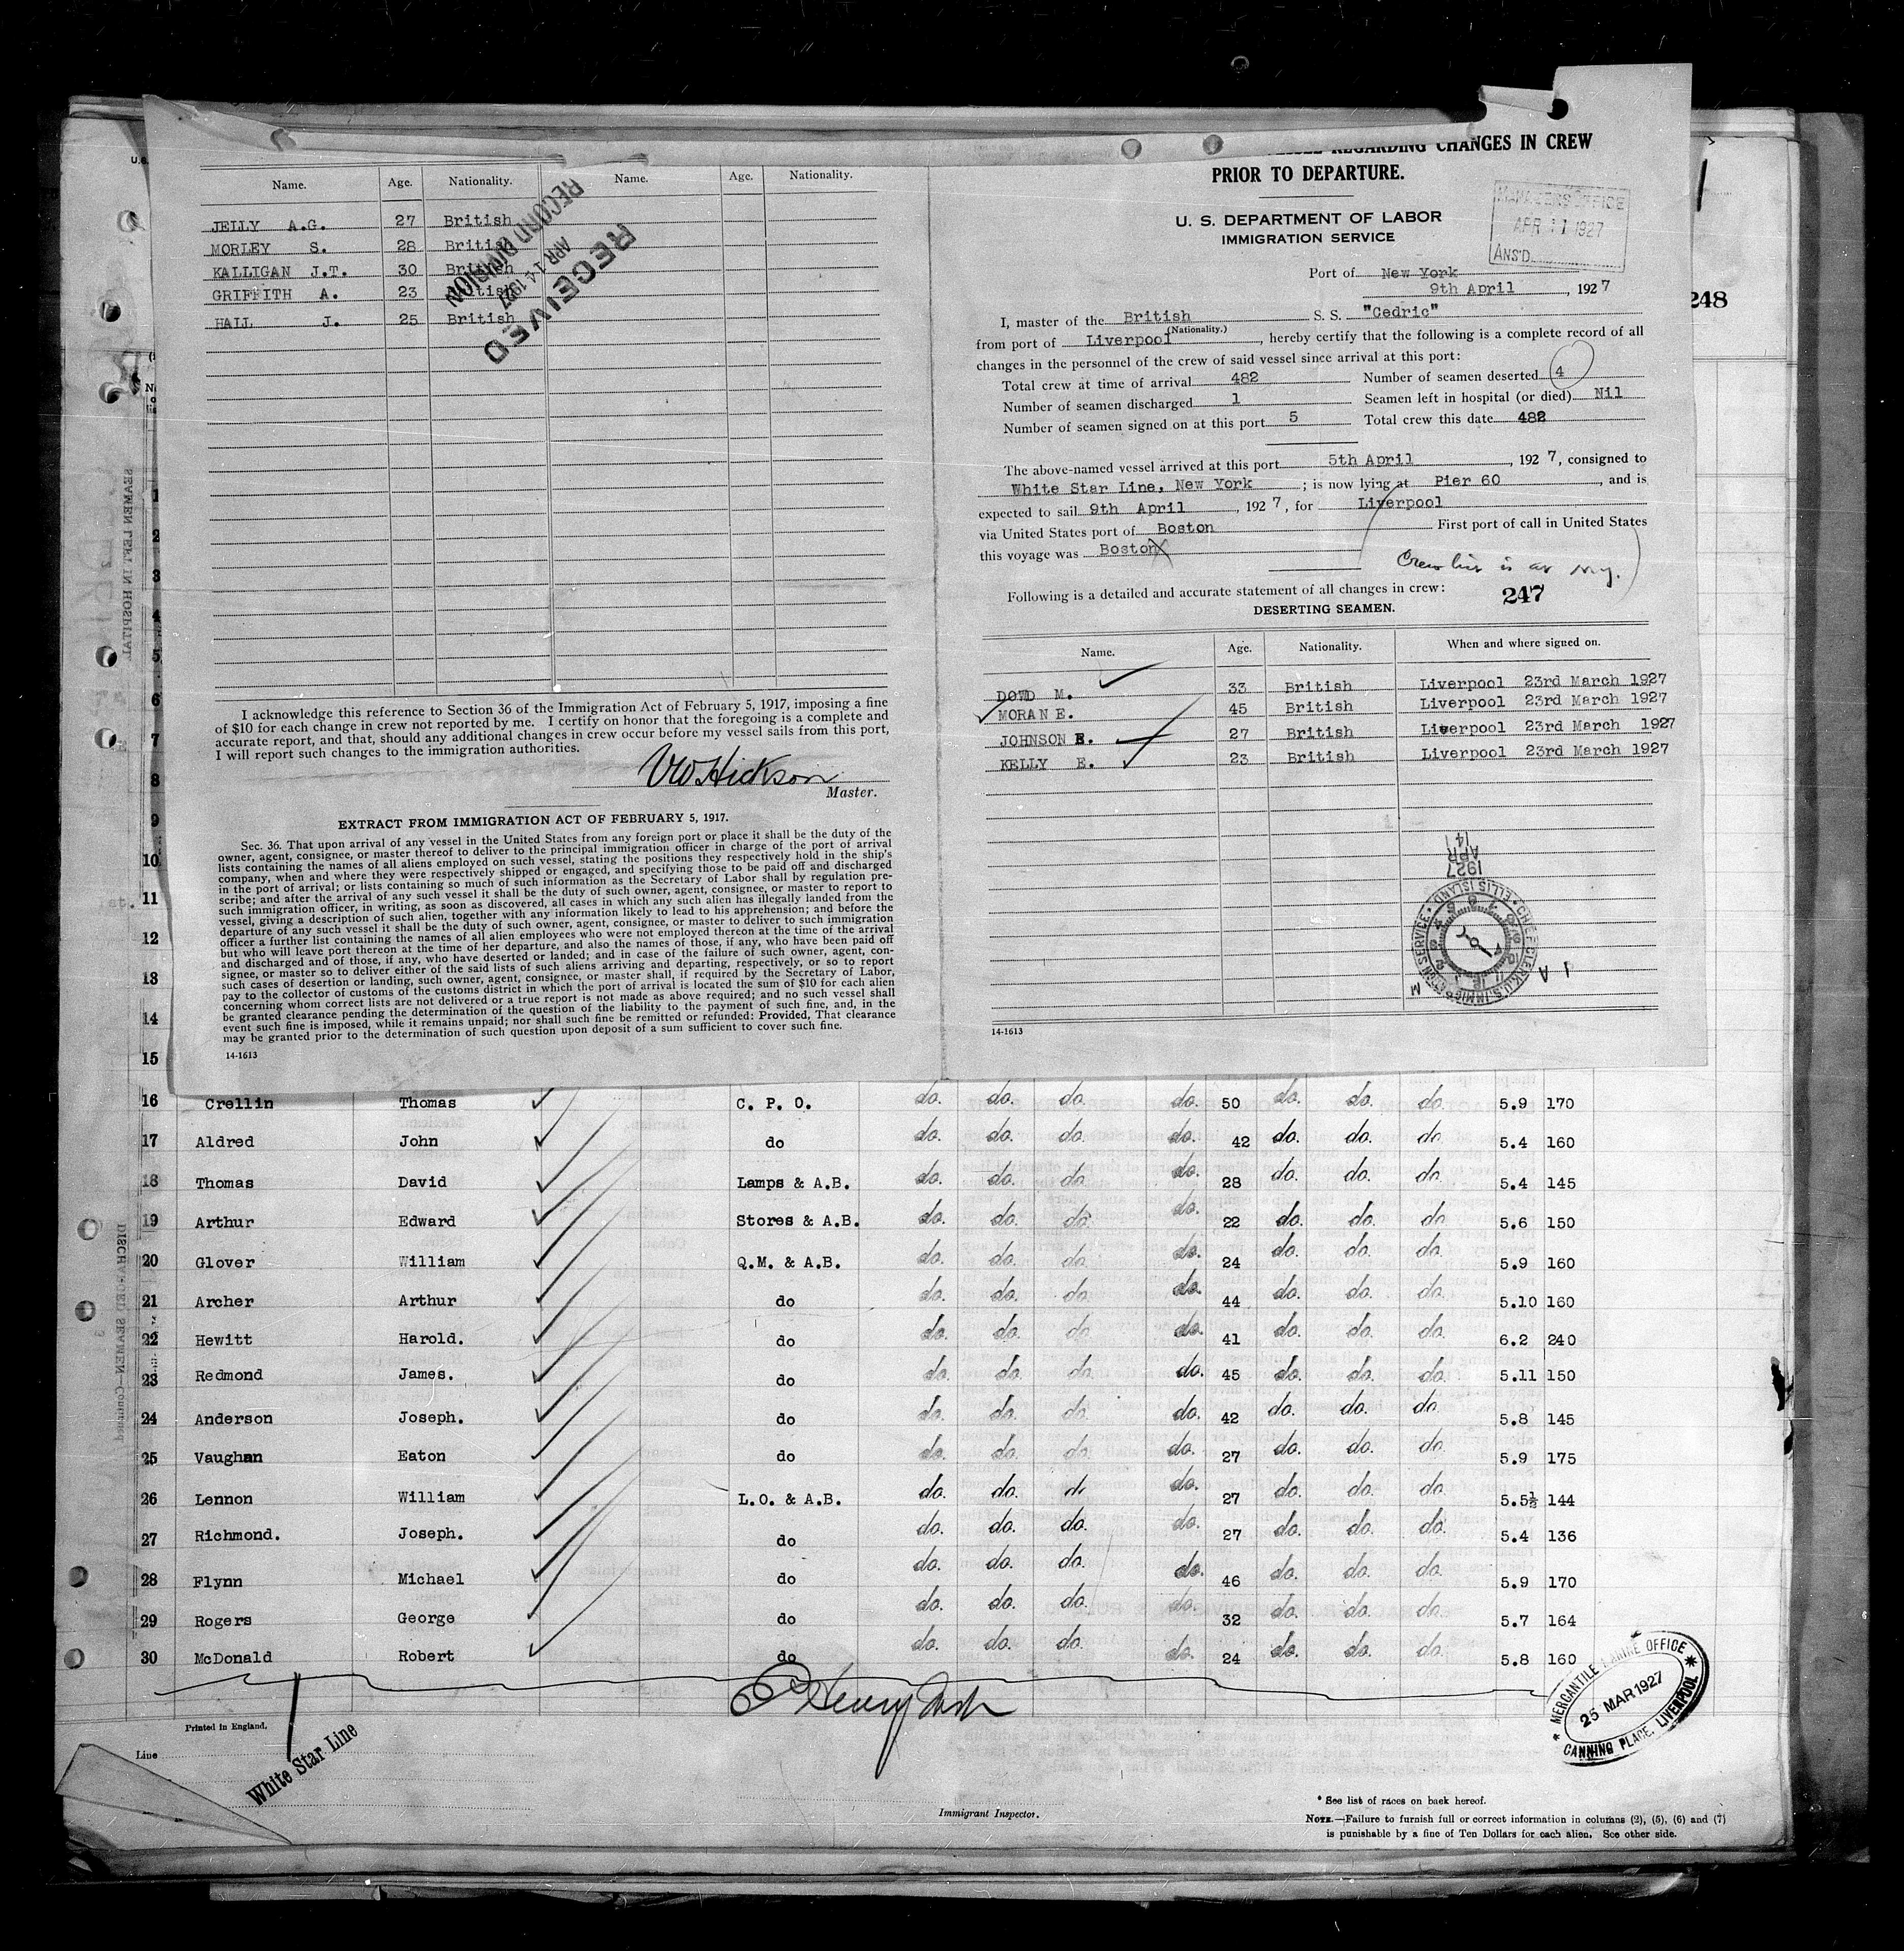 Name. Age. Nationality. Name. Age. Nationality.
JEILY A.G. 27 British
MORLEY S. 28 British
KALLIGAN J.T. 30 British
GRIFFITH A. 23 British
HALL J. 25 British
RECEIVED
APR 14 1927
RECORD DIVISION
I acknowledge this reference to Section 36 of the Immigration Act of February 5, 1917, imposing a fine
of $10 for each change in crew not reported by me. I certify on honor that the foregoing is a complete and
accurate report, and that, should any additional changes in crew occur before my vessel sails from this port,
I will report such changes to the immigration authorities.
VW Hickson
Master.
EXTRACT FROM IMMIGRATION ACT OF FEBRUARY 5, 1917.
Sec. 36. That upon arrival of any vessel in the United States from any foreign port or place it shall be the duty of the
owner, agent, consignee, or master thereof to deliver to the principal immigration officer in charge of the port of arrival
lists containing the names of all aliens employed on such vessel, stating the positions they respectively hold in the ship's
company, when and where they were respectively shipped or engaged, and specifying those to be paid off and discharged
in the port of arrival; or lists containing so much of such information as the Secretary of Labor shall by regulation pre-
scribe; and after the arrival of any such vessel it shall be the duty of such owner, agent, consignee, or master to report to
such immigration officer, in writing, as soon as discovered, all cases in which any such alien has illegally landed from the
vessel, giving a description of such alien, together with any information likely to lead to his apprehension; and before the
departure of any such vessel it shall be the duty of such owner, agent, consignee, or master to deliver to such immigration
officer a further list containing the names of all alien employees who were not employed thereon at the time of the arrival
but who will leave port thereon at the time of her departure, and also the names of those, if any, who have been paid off
and discharged and of those, if any, who have deserted or landed; and in case of the failure of such owner, agent, con-
signee, or master so to deliver either of the said lists of such aliens arriving and departing, respectively, or so to report
such cases of desertion or landing, such owner, agent, consignee, or master shall, if required by the Secretary of Labor,
pay to the collector of customs of the customs district in which the port of arrival is located the sum of $10 for each alien
concerning whom correct lists are not delivered or a true report is not made as above required; and no such vessel shall
be granted clearance pending the determination of the question of the liability to the payment of such fine, and, in the
event such fine is imposed, while it remains unpaid; nor shall such fine be remitted or refunded: Provided, That clearance
may be granted prior to the determination of such question upon deposit of a sum sufficient to cover such fine.
14-1613
REGARDING CHANGES IN CREW
PRIOR TO DEPARTURE.
U. S. DEPARTMENT OF LABOR
IMMIGRATION SERVICE
MANAGERS OFFICE
APR 11 1927
ANS'D
Port of New York
9th April, 1927
I, master of the British S. S. "Cedric"
(Nationality.)
from port of Liverpool, hereby certify that the following is a complete record of all
changes in the personnel of the crew of said vessel since arrival at this port:
Total crew at time of arrival 482 Number of seamen deserted 4
Number of seamen discharged 1 Seamen left in hospital (or died) Nil
Number of seamen signed on at this port 5 Total crew this date 482
The above-named vessel arrived at this port 5th April, 1927, consigned to
White Star Line, New York; is now lying at Pier 60, and is
expected to sail 9th April, 1927, for Liverpool
via United States port of Boston First port of call in United States
this voyage was Boston
Crew list is at N.Y.
Following is a detailed and accurate statement of all changes in crew:
247
DESERTING SEAMEN.
Name. Age. Nationality. When and where signed on.
DOWD M. 33 British Liverpool 23rd March 1927
MORAN E. 45 British Liverpool 23rd March 1927
JOHNSON E. 27 British Liverpool 23rd March 1927
KELLY E. 23 British Liverpool 23rd March 1927
1927
APR
14
CHIEF CLERK U.S. IMMIGRATION SERVICE ELLIS ISLAND
14-1613
248
SEAMEN LEFT IN HOSPITAL
DISCHARGED SEAMEN—Continued.
1
2
3
4
5
6
7
8
9
10
11
12
13
14
15
16 Crellin Thomas C. P. O. do. do. do. do. 50 do. do. do. 5.9 170
17 Aldred John do do. do. do. do. 42 do. do. do. 5.4 160
18 Thomas David Lamps & A.B. do. do. do. do. 28 do. do. do. 5.4 145
19 Arthur Edward Stores & A.B. do. do. do. do. 22 do. do. do. 5.6 150
20 Glover William Q.M. & A.B. do. do. do. do. 24 do. do. do. 5.9 160
21 Archer Arthur do do. do. do. do. 44 do. do. do. 5.10 160
22 Hewitt Harold. do do. do. do. do. 41 do. do. do. 6.2 240
23 Redmond James. do do. do. do. do. 45 do. do. do. 5.11 150
24 Anderson Joseph. do do. do. do. do. 42 do. do. do. 5.8 145
25 Vaughan Eaton do do. do. do. do. 27 do. do. do. 5.9 175
26 Lennon William L.O. & A.B. do. do. do. do. 27 do. do. do. 5.5½ 144
27 Richmond. Joseph. do do. do. do. do. 27 do. do. do. 5.4 136
28 Flynn Michael do do. do. do. do. 46 do. do. do. 5.9 170
29 Rogers George do do. do. do. do. 32 do. do. do. 5.7 164
30 McDonald Robert do do. do. do. do. 24 do. do. do. 5.8 160
Printed in England.
Line White Star Line
Immigrant Inspector.
MERCANTILE MARINE OFFICE
25 MAR 1927
CANNING PLACE, LIVERPOOL
* See list of races on back hereof.
NOTE.—Failure to furnish full or correct information in columns (2), (5), (6) and (7)
is punishable by a fine of Ten Dollars for each alien. See other side.